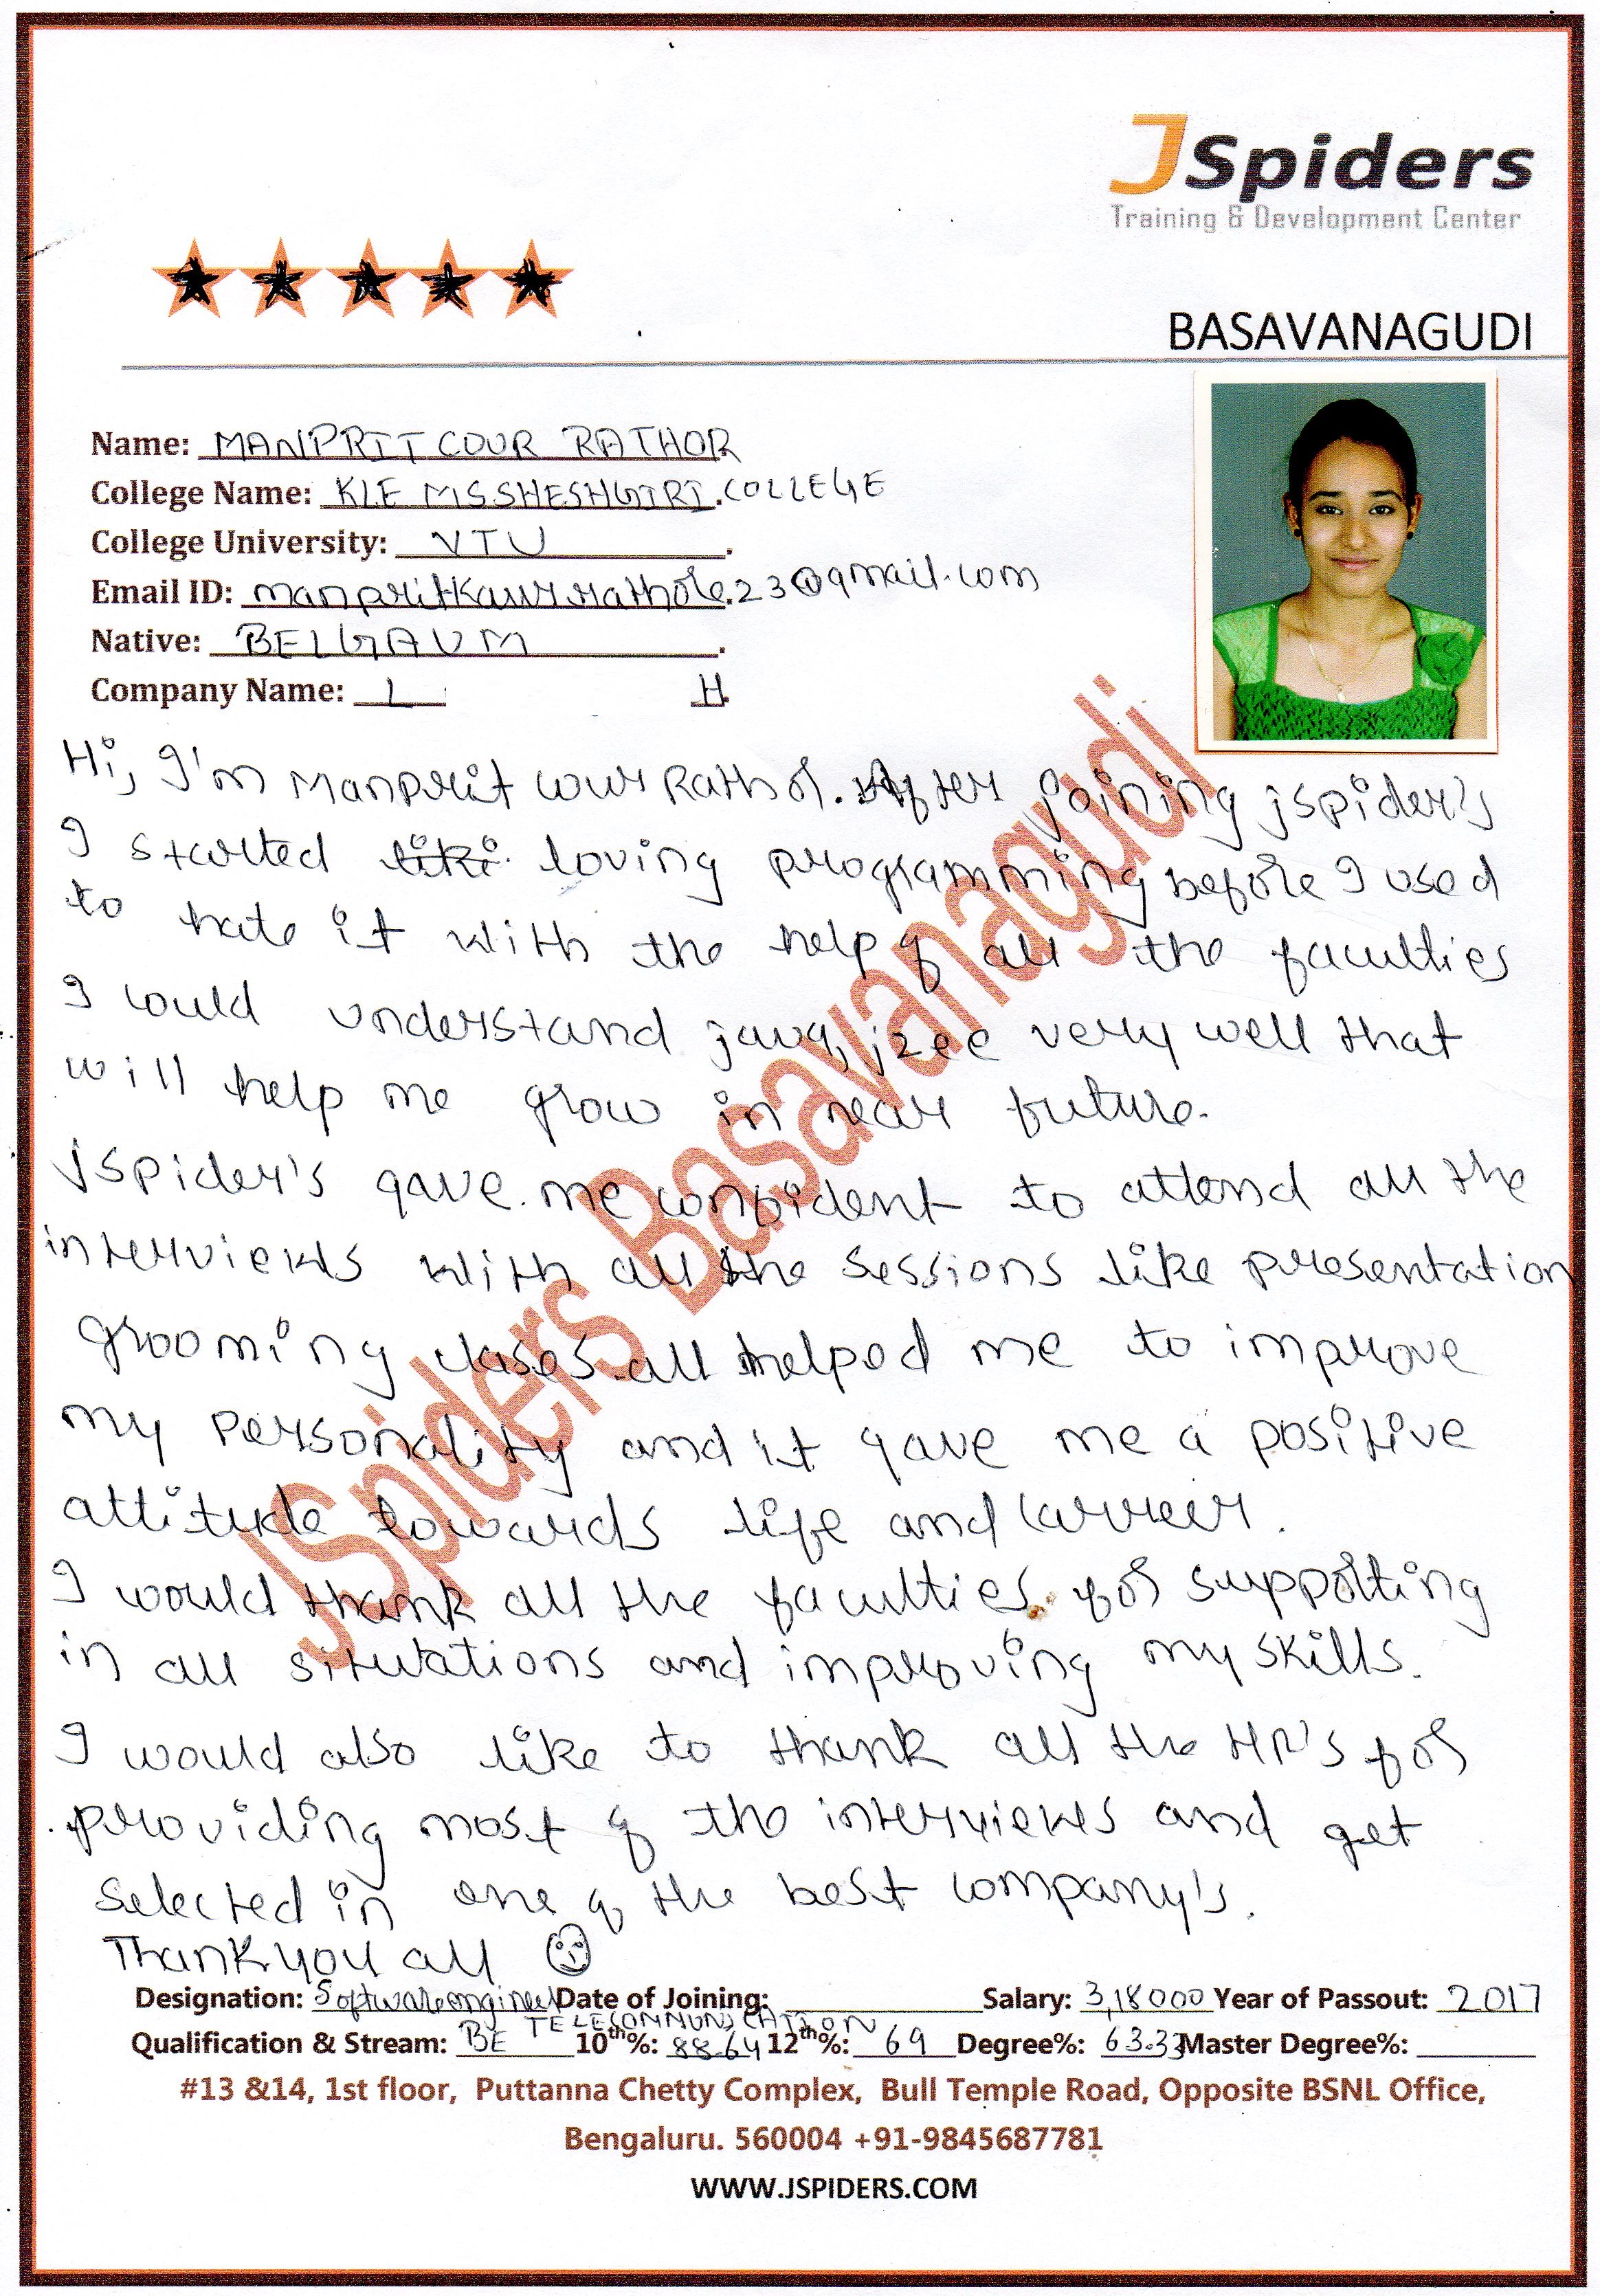 JSpiders
Training & Development Center
BASAVANAGUDI
Name: MANPRIT COUR RATHOR
College Name: KLE MSSHESHGIRI COLLEGE
College University: VTU
Email ID: manpritkaurrathore23@gmail.com
Native: BELGAUM
Company Name: L H
Hi, I'm Manprit cour Rathor. After joining jspider's
I started liki loving programming before I used
to hate it with the help of all the faculties
I could understand java, j2ee very well that
will help me grow in near future.
JSpider's gave me confident to attend all the
interviews with all the sessions like presentation
grooming clases all helped me to improve
my personality and it gave me a positive
attitude towards life and carreer.
I would thank all the faculties for supporting
in all situtations and improving my skills.
I would also like to thank all the HR's for
providing most of the interviews and get
selected in one of the best company's.
Thank you all
JSpiders Basavanagudi
Designation: Software engineer Date of Joining: Salary: 3,18000 Year of Passout: 2017
Qualification & Stream: BE TELECOMMUNICATION 10th%: 88.64 12th%: 69 Degree%: 63.33 Master Degree%:
#13 &14, 1st floor, Puttanna Chetty Complex, Bull Temple Road, Opposite BSNL Office,
Bengaluru. 560004 +91-9845687781
WWW.JSPIDERS.COM